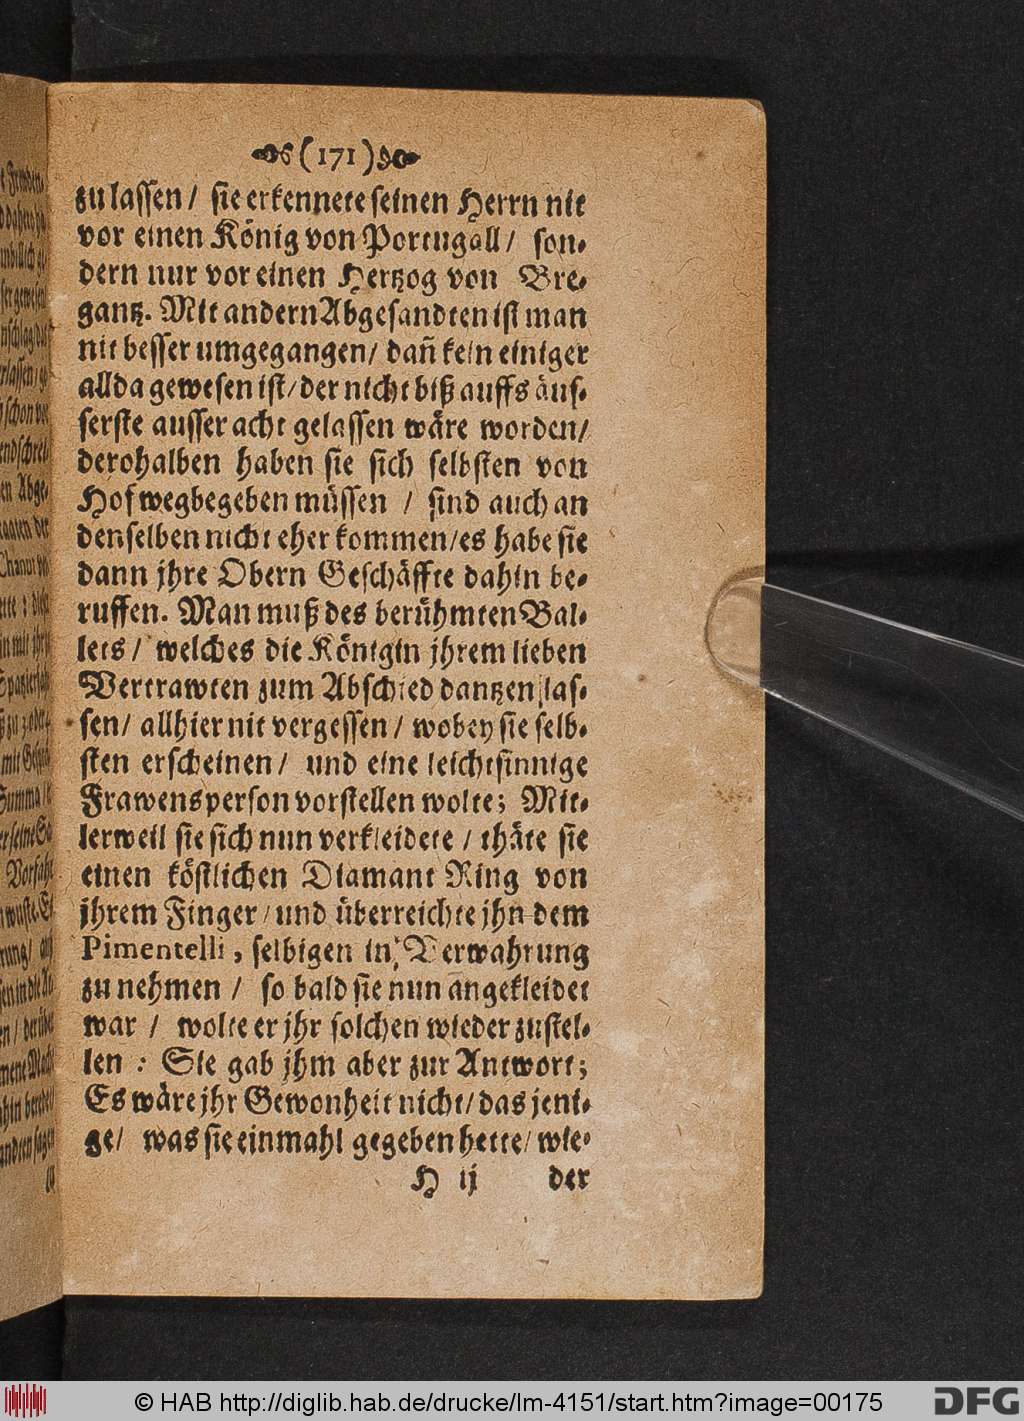 (171)
zu lassen / sie erkennete seinen Herrn nit
vor einen König von Portugall / son-
dern nur vor einen Hertzog von Bre-
gantz. Mit andern Abgesandten ist man
nit besser umgegangen / dañ kein einiger
allda gewesen ist / der nicht biß auffs äus-
serste ausser acht gelassen wäre worden /
derohalben haben sie sich selbsten von
Hof wegbegeben müssen / sind auch an
denselben nicht eher kommen / es habe sie
dann jhre Obern Geschäffte dahin be-
ruffen. Man muß des berühmten Bal-
lets / welches die Königin jhrem lieben
Vertrawten zum Abschied dantzen las-
sen / allhier nit vergessen / wobey sie selb-
sten erscheinen / und eine leichtsinnige
Frawensperson vorstellen wolte; Mit-
lerweil sie sich nun verkleidete / thäte sie
einen köstlichen Diamant Ring von
jhrem Finger / und überreichte jhn dem
Pimentelli, selbigen in Verwahrung
zu nehmen / so bald sie nun angekleidet
war / wolte er jhr solchen wieder zustel-
len : Sie gab jhm aber zur Antwort;
Es wäre jhr Gewonheit nicht / das jeni-
ge / was sie einmahl gegeben hette / wie-
H ij der
© HAB http://diglib.hab.de/drucke/lm-4151/start.htm?image=00175
DFG